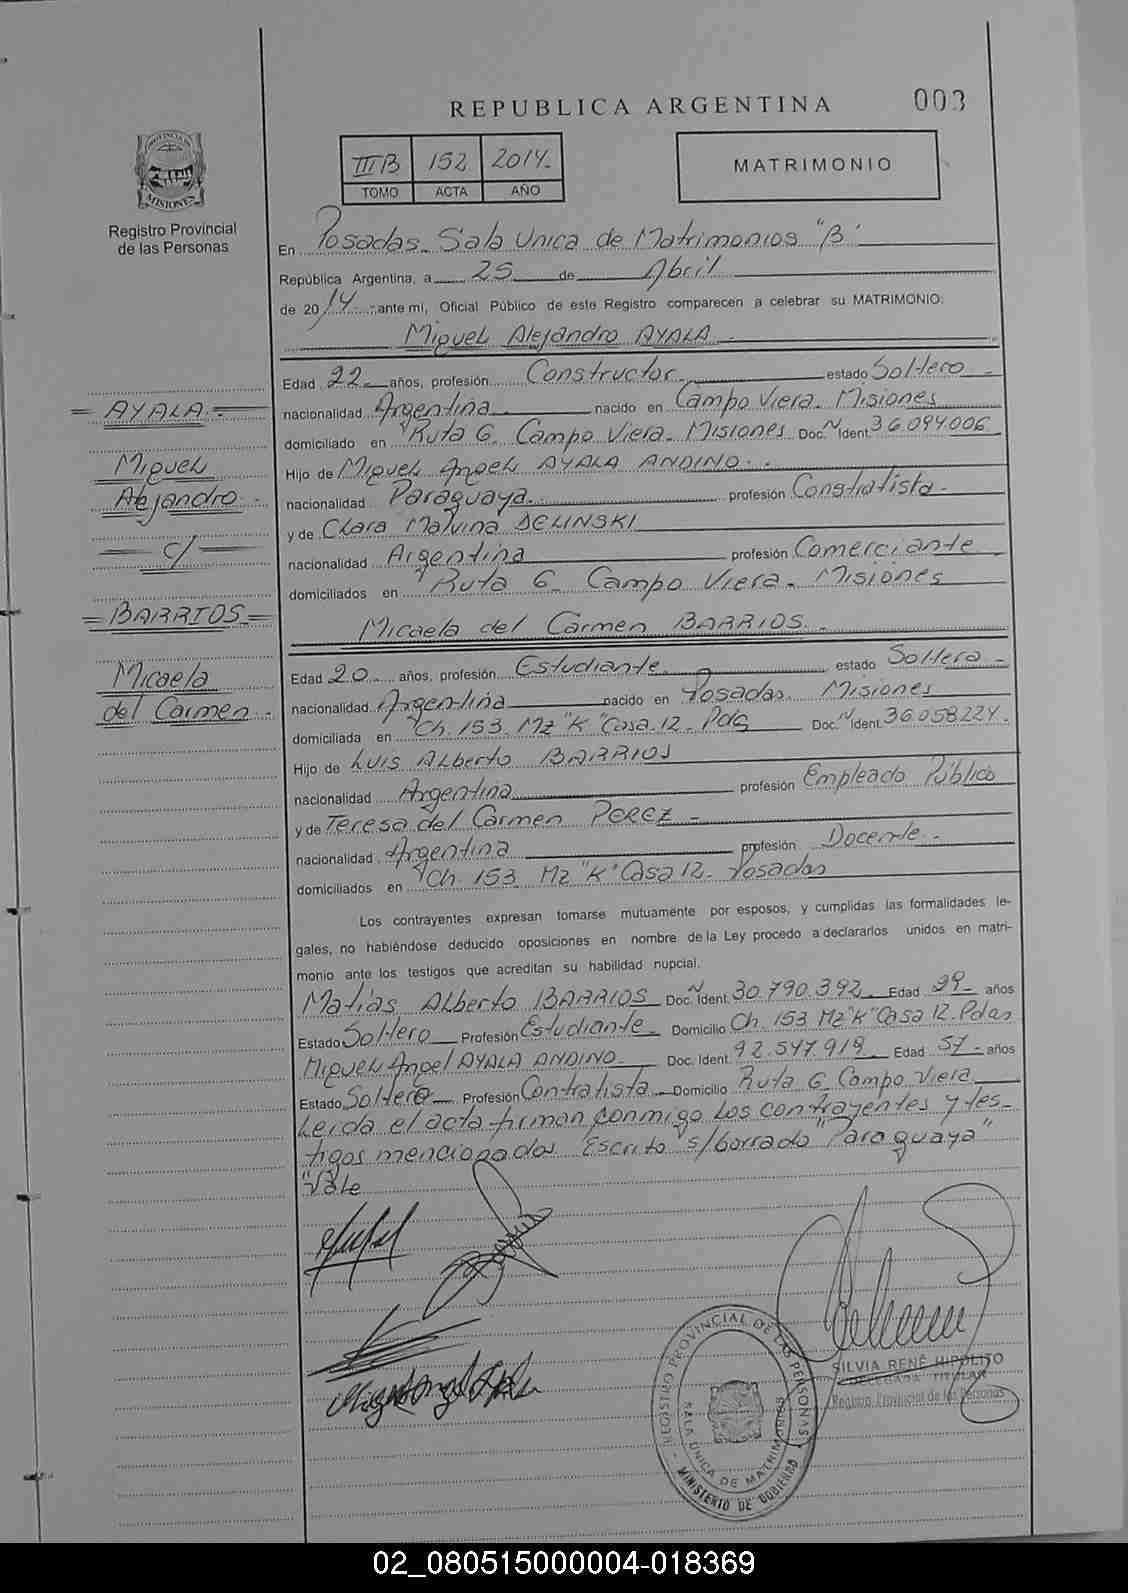 REPUBLICA ARGENTINA
003
PROVINCIA DE
MISIONES
Registro Provincial
de las Personas
III B 152 2014.-
TOMO ACTA AÑO
MATRIMONIO
En Posadas. Sala Unica de Matrimonios "B"
República Argentina, a 25 de Abril
de 2014 ante mi, Oficial Público de este Registro comparecen a celebrar su MATRIMONIO:
Miguel Alejandro AYALA.-
Edad 22 años, profesión Constructor estado Soltero.-
nacionalidad Argentina nacido en Campo Viera. Misiones
domiciliado en Ruta 6. Campo Viera. Misiones Doc. Ident. 36.094.006
Hijo de Miguel Angel AYALA ANDINO.-
nacionalidad Paraguaya. profesión Constratista.-
y de Clara Malvina DELINSKI
nacionalidad Argentina profesión Comerciante
domiciliados en Ruta 6 Campo Viera. Misiones
Micaela del Carmen BARRIOS.-
Edad 20 años, profesión Estudiante. estado Soltera.-
nacionalidad Argentina nacido en Posadas. Misiones
domiciliada en Ch. 153. Mz "K" Casa. 12. Pdas Doc. Ident. 36.058.224.
Hijo de Luis Alberto BARRIOS
nacionalidad Argentina profesión Empleado Público
y de Teresa del Carmen PEREZ -
nacionalidad Argentina profesión Docente.-
domiciliados en Ch. 153. Mz "K" Casa 12. Posadas
Los contrayentes expresan tomarse mutuamente por esposos, y cumplidas las formalidades le-
gales, no habiéndose deducido oposiciones en nombre de la Ley procedo a declararlos unidos en matri-
monio ante los testigos que acreditan su habilidad nupcial.
Matias Alberto BARRIOS Doc. Ident. 30.790.392 Edad 29 años
Estado Soltero Profesión Estudiante Domicilio Ch. 153 Mz "K" Casa 12. Pdas
Miguel Angel AYALA ANDINO Doc. Ident. 92.547.919 Edad 57 años
Estado Soltero Profesión Contratista Domicilio Ruta 6 Campo Viera
Leida el acta firman conmigo los contrayentes y tes-
tigos mencionados Escrito s/borrado "Paraguaya"
"Vale
= AYALA =
Miguel
Alejandro.-
c/
= BARRIOS =
Micaela
del Carmen.-
REGISTRO PROVINCIAL DE LAS PERSONAS
SALA UNICA DE MATRIMONIOS
MINISTERIO DE GOBIERNO
SILVIA RENÉ HIPOLITO
DELEGADA TITULAR
Registro Provincial de las Personas
02_080515000004-018369